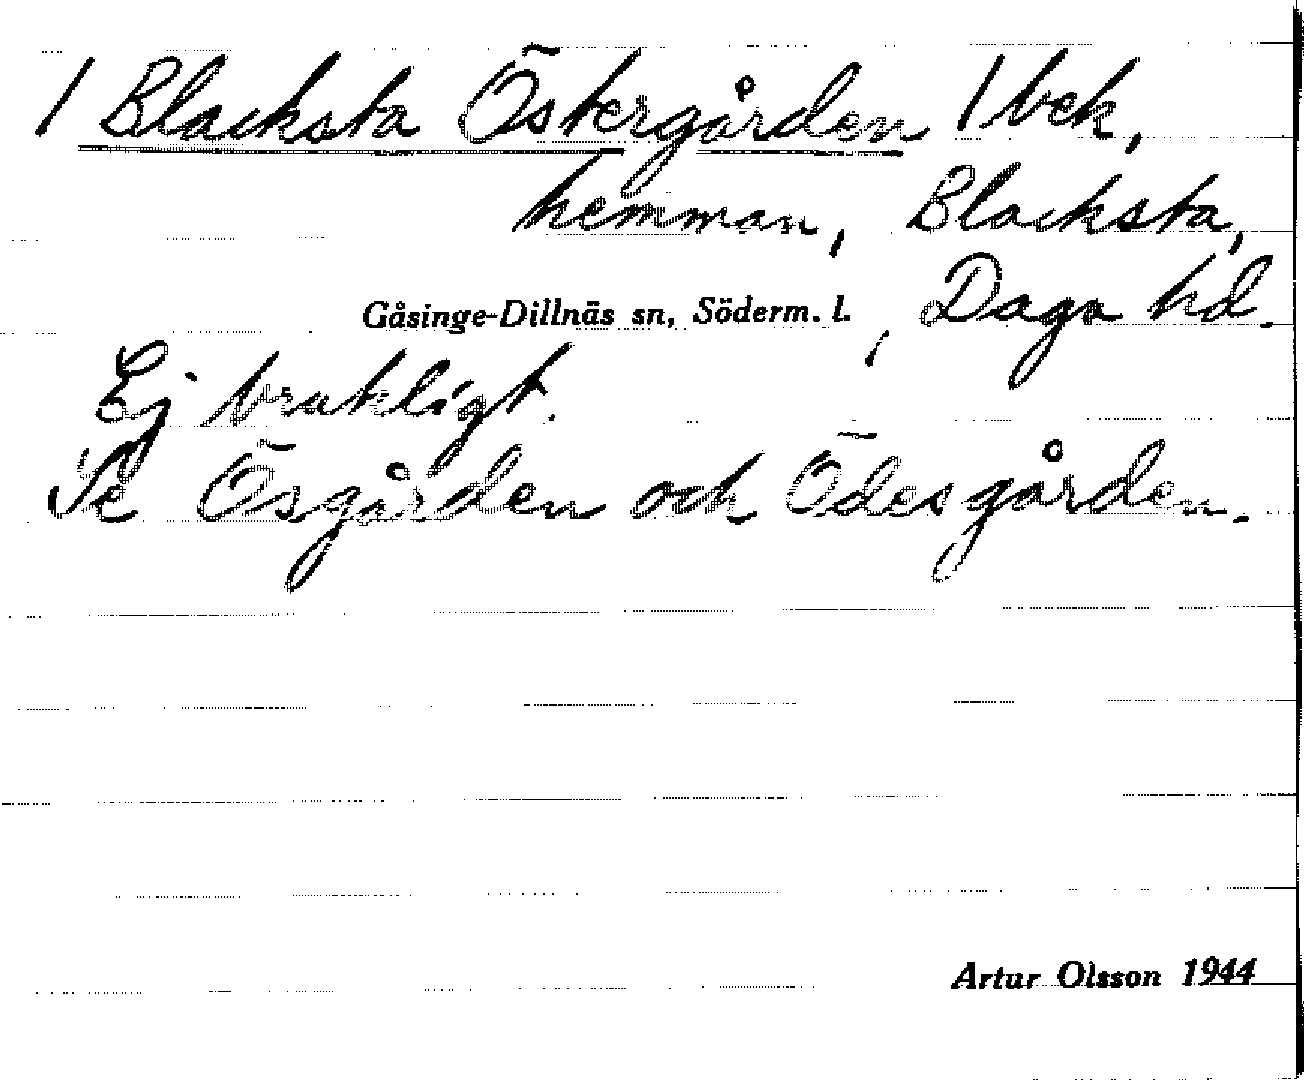 / Blacksta Östergården / bek,
hemman, Blacksta,
Gåsinge-Dillnäs sn, Söderm. l., Daga hd.
Ej brukligt.
Se Ösgården och Ödesgården.
Artur Olsson 1944